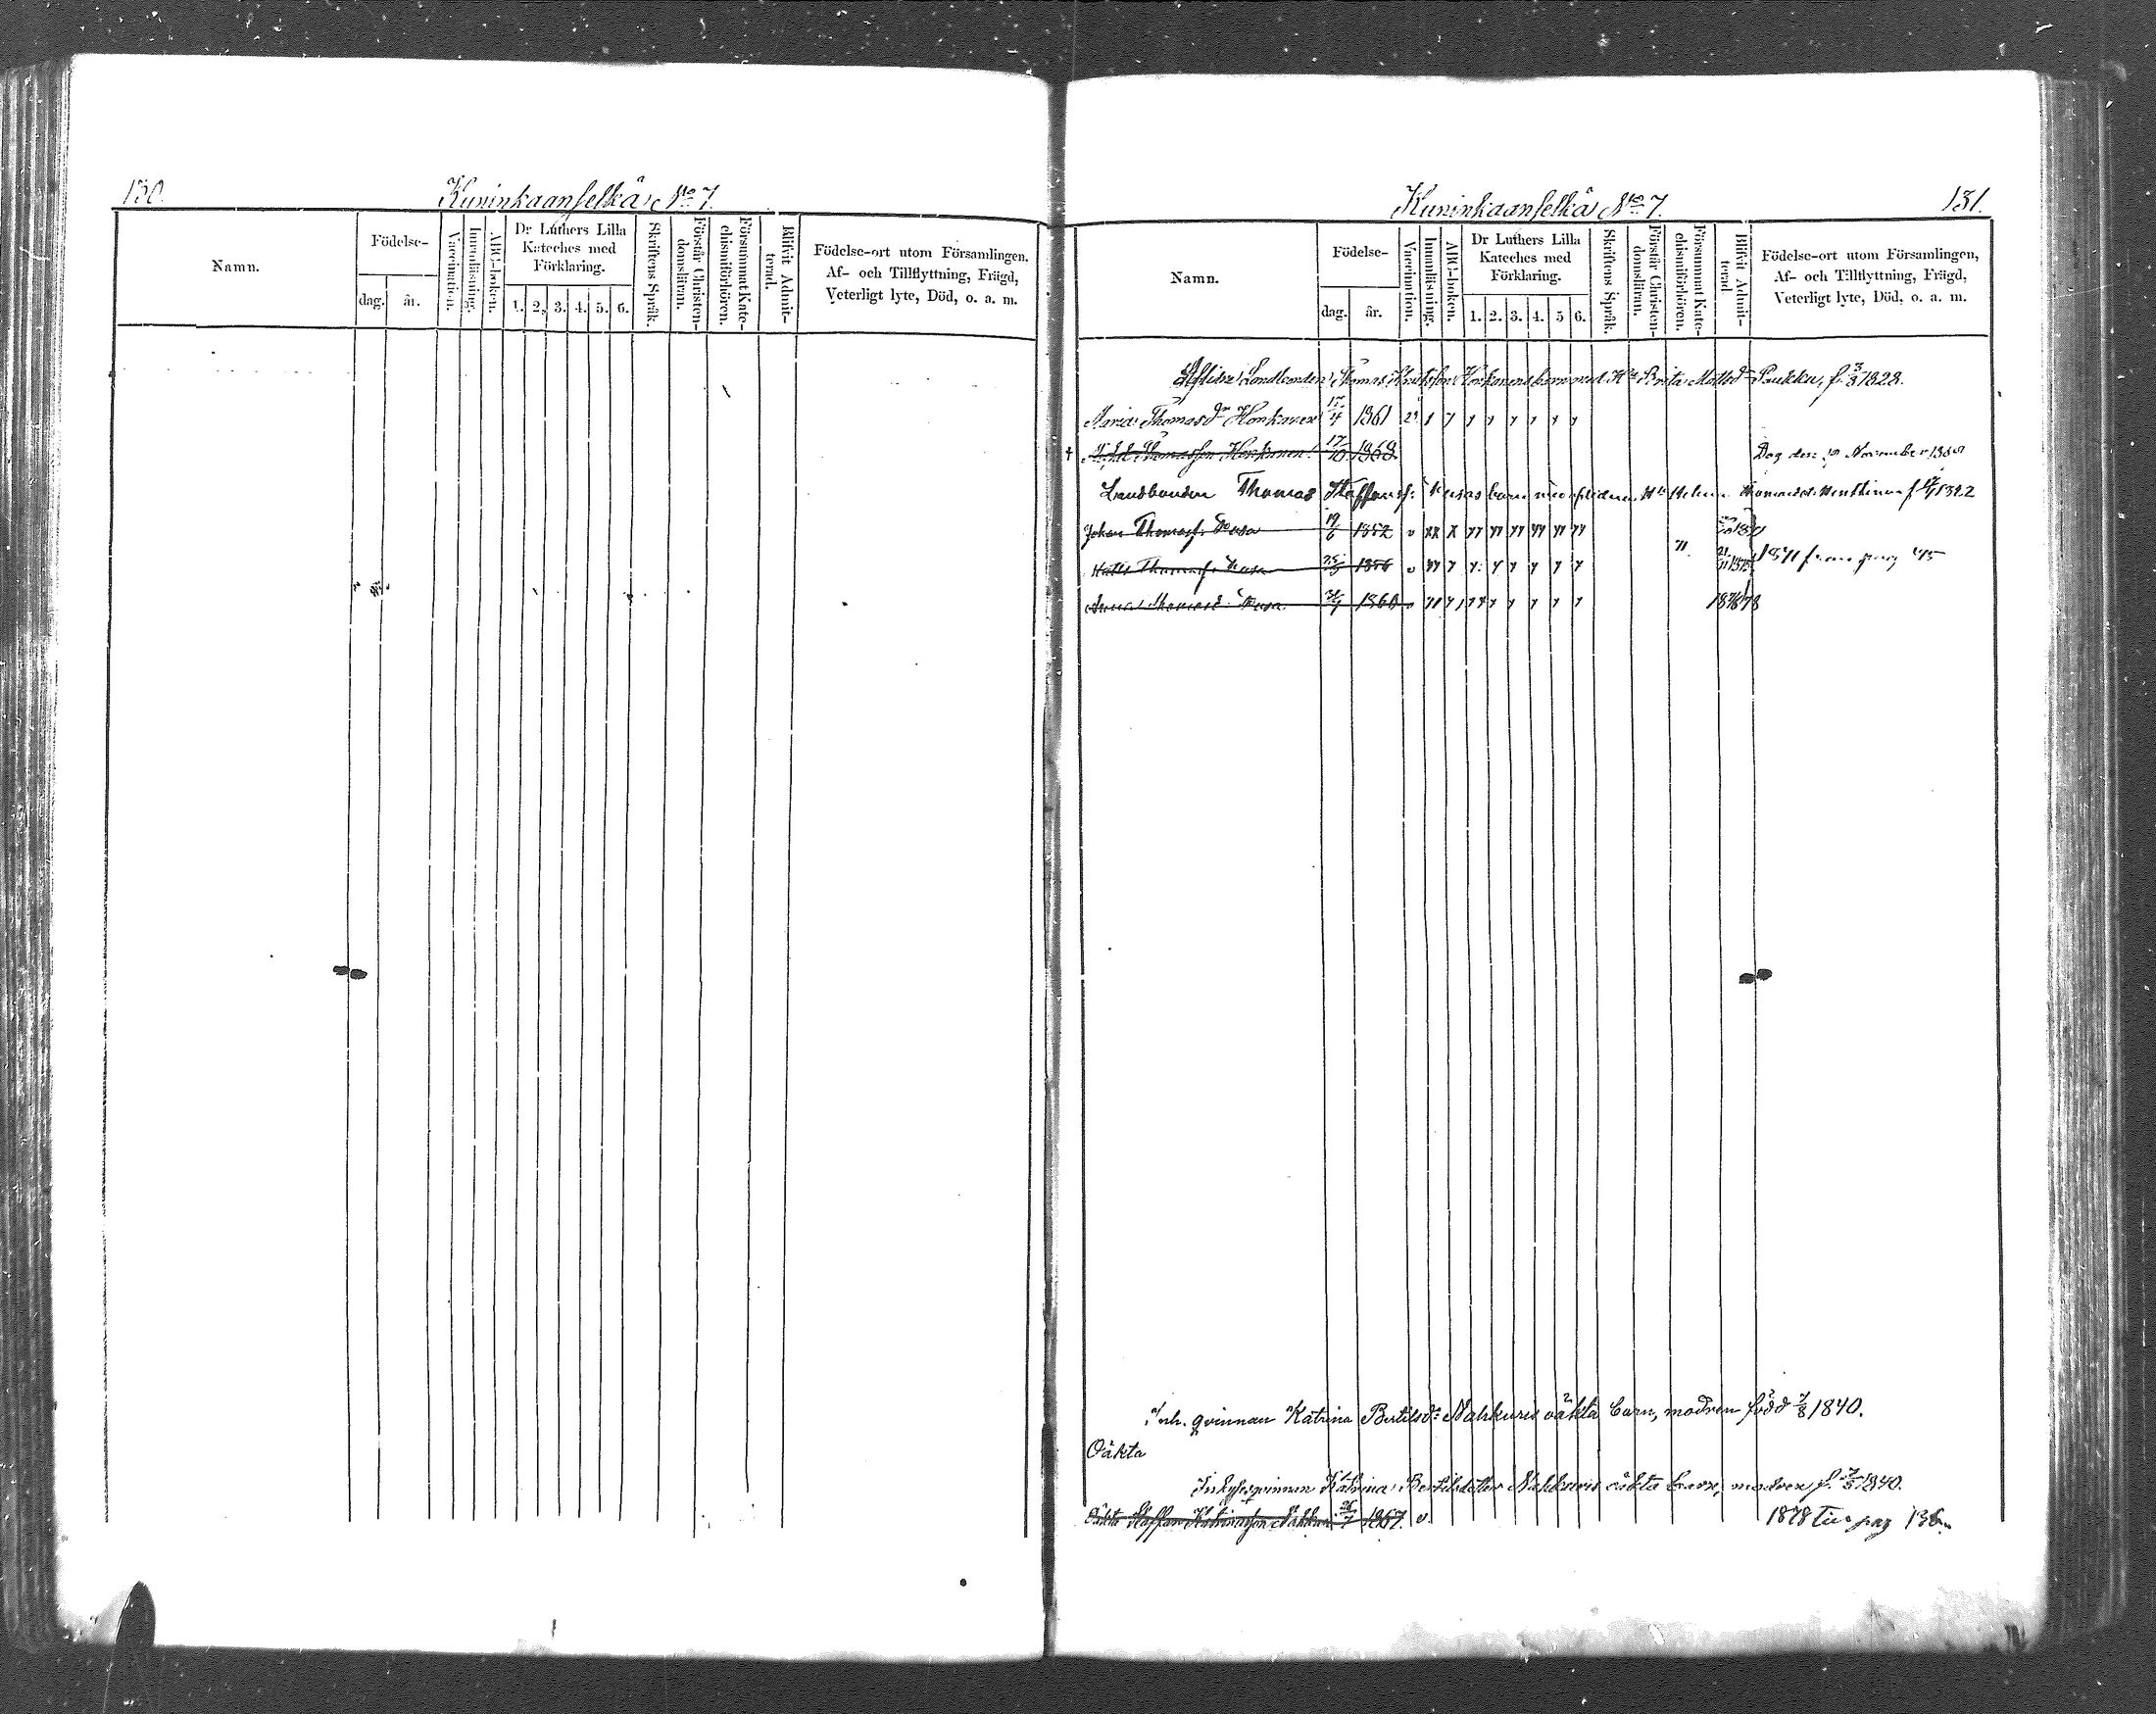 130.
Kuninkaanselkä No 7.
Namn.
Födelse-
dag. år.
Vaccination.
Innanläsning.
ABC-boken.
Dr Luthers Lilla
Kateches med
Förklaring.
1. 2. 3. 4. 5. 6.
Skriftens Språk.
Förstår Christen-
domsläran.
Försummat Kate-
chismiförhören.
Blifvit Admit-
terad.
Födelse-ort utom Församlingen,
Af- och Tillflyttning, Frägd,
Veterligt lyte, Död, o. a. m.
Kuninkaanselkä No 7.
131.
Namn.
Födelse-
dag. år.
Vaccination.
Innanläsning.
ABC-boken.
Dr Luthers Lilla
Kateches med
Förklaring.
1. 2. 3. 4. 5 6.
Skriftens Språk.
Förstår Christen-
domsläran.
Försummat Kate-
chismiförhören.
Blifvit Admit-
terad
Födelse-ort utom Församlingen,
Af- och Tillflyttning, Frägd,
Veterligt lyte, Död, o. a. m.
Aflidne Landbonden Thomas Honkanens barn med Brita Mattsdr Paukku, f. 1828.
Maria Thomasdr Honkanen 17/4 1861
Thomasson Honkanen 17/10 1868. Dog den November 1868
Landbonden Thomas Staffansf. Kusas barn med aflidna Hu Helena Thomasdr 1822
Johan Thomasf. Kusa 19/6 1852
Matts Thomasf. Kusa 1856 1871 från pag 45
Anna Thomasd. Kusa 1860 1878
Inh. qvinnan Katrina Bertilsdr Nahkuris oäkta barn, modren född 7/8 1840.
Oäkta
Inhysesqvinnan Katrina Bertilsdotter Nahkuris oäkta barn, modren f. 7/8 1840.
Oäkta Staffan Katrinasson Nahkuri 26/7 1867. v. 1878 till pag 136.